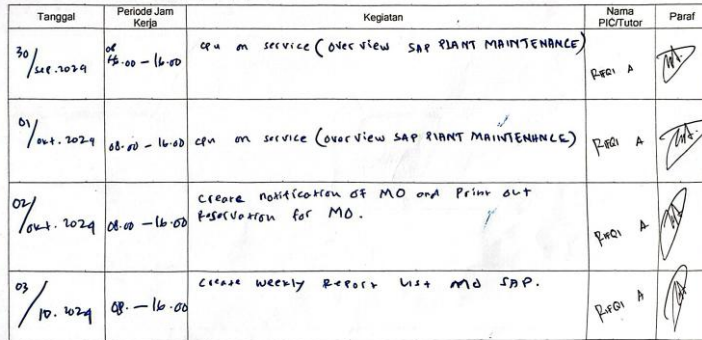 Tanggal
Periode Jam
Kerja
Kegiatan
Nama
PIC/Tutor
Paraf
30/sep.2024
08.00 - 16.00
cpu on service (over view SAP PLANT MAINTENANCE)
RIFQI A
01/okt. 2024
08.00 - 16.00
cpu on service (over view SAP PLANT MAINTENANCE)
RIFQI A
02/okt. 2024
08.00 - 16.00
create notification of MO and Print out
Reservation for MO.
RIFQI A
03/10. 2024
08. - 16.00
Create weekly Report List MO SAP.
RIFQI A